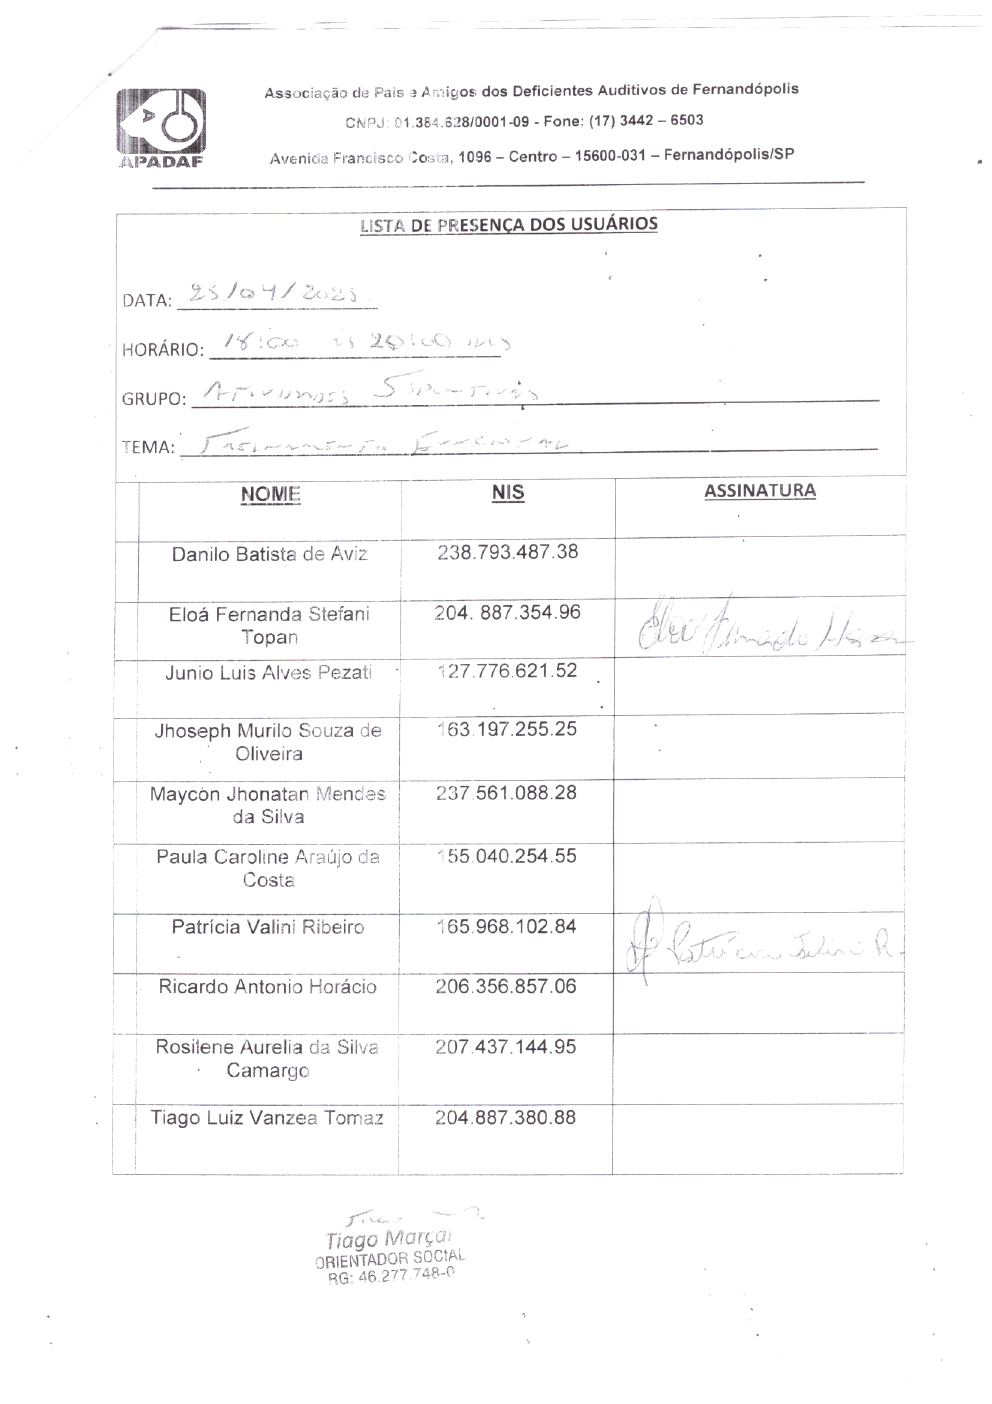 Associação de Pais e Amigos dos Deficientes Auditivos de Fernandópolis
CNPJ: 01.384.628/0001-09 - Fone: (17) 3442 – 6503
APADAF
Avenida Francisco Costa, 1096 – Centro – 15600-031 – Fernandópolis/SP
LISTA DE PRESENÇA DOS USUÁRIOS
DATA: 25/04/2025
HORÁRIO: 18:00 às 20:00 hrs
GRUPO: Atividades
TEMA: Treinamento
NOME NIS ASSINATURA
Danilo Batista de Aviz 238.793.487.38
Eloá Fernanda Stefani 204. 887.354.96
Topan
Junio Luis Alves Pezati 127.776.621.52
Jhoseph Murilo Souza de 163.197.255.25
Oliveira
Maycon Jhonatan Mendes 237.561.088.28
da Silva
Paula Caroline Araújo da 155.040.254.55
Costa
Patrícia Valini Ribeiro 165.968.102.84 Patrícia Valini R.
Ricardo Antonio Horácio 206.356.857.06
Rosilene Aurelia da Silva 207.437.144.95
Camargo
Tiago Luiz Vanzea Tomaz 204.887.380.88
Tiago Marçal
ORIENTADOR SOCIAL
RG: 46.277.748-0